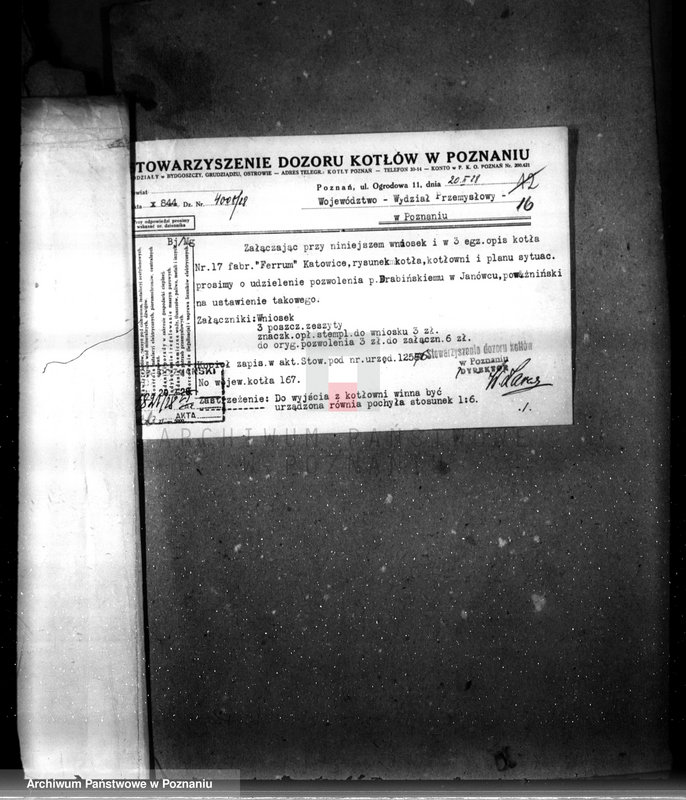 STOWARZYSZENIE DOZORU KOTŁÓW W POZNANIU
ODDZIAŁY w BYDGOSZCZY, GRUDZIĄDZU, OSTROWIE — ADRES TELEGR.: KOTŁY POZNAŃ — TELEFON 30-14 — KONTO w P. K. O. POZNAŃ Nr. 200.421
Poznań, ul. Ogrodowa 11, dnia 20.II 28
x 844 Dz. Nr. 4008/28
Województwo - Wydział Przemysłowy -
16
w Poznaniu
Przy odpowiedzi prosimy
wskazać nr. dziennika
Bj/Mg
Załączając przy niniejszem wniosek i w 3 egz.opis kotła
Nr.17 fabr."Ferrum" Katowice,rysunek kotła,kotłowni i planu sytuac.
prosimy o udzielenie pozwolenia p.Drabińskiemu w Janówcu,pow.żniński
na ustawienie takowego.
Załączniki: Wniosek
3 poszcz.zeszyty
znaczk.opł.stempl.do wniosku 3 zł.
do oryg.pozwolenia 3 zł.do załączn.6 zł.
Kocioł zapis.w akt.Stow.pod nr.urzęd.12556
Stowarzyszenia dozoru kotłów
w Poznaniu
DYREKTOR
No wojew.kotła 167.
Zastrzeżenie: Do wyjścia z kotłowni winna być
urządzona równia pochyła stosunek 1:6.
./.
AKTA
ARCHIWUM PAŃSTWOWE
W POZNANIU
Archiwum Państwowe w Poznaniu